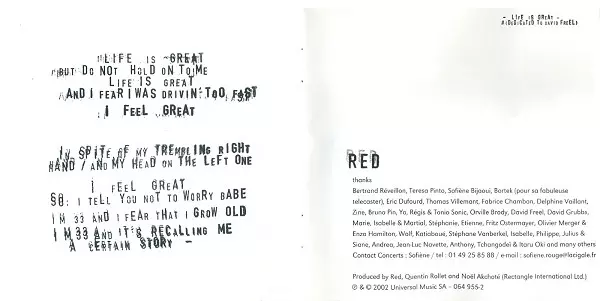 LIFE IS GREAT
BUT DO NOT HOLD ON TO ME
LIFE IS GREAT
AND I FEAR I WAS DRIVIN' TOO FAST
I FEEL GREAT
IN SPITE OF MY TREMBLING RIGHT
HAND / AND MY HEAD ON THE LEFT ONE
I FEEL GREAT
SO: I TELL YOU NOT TO WORRY BABE
I M 33 AND I FEAR THAT I GROW OLD
I M 33 AND IT'S RECALLING ME
A CERTAIN STORY -
- LIFE IS GREAT -
(DEDICATED TO DAVID FREEL)
RED
thanks
Bertrand Réveillon, Teresa Pinto, Sofiène Bijaoui, Bartek (pour sa fabuleuse
telecaster), Eric Dufourd, Thomas Villemant, Fabrice Chambon, Delphine Vaillant,
Zine, Bruno Pin, Yo, Régis & Tonio Sonic, Orville Brody, David Freel, David Grubbs,
Marie, Isabelle & Martial, Stéphanie, Etienne, Fritz Ostermayer, Olivier Merger &
Enza Hamilton, Wolf, Katiaboué, Stéphane Vanberkel, Isabelle, Philippe, Julius &
Siane, Andrea, Jean-Luc Navette, Anthony, Tchangodei & Itaru Oki and many others
Contact Concerts : Sofiène / tel : 01 49 25 85 88 / e-mail : sofiene.rouge@lacigale.fr
Produced by Red, Quentin Rollet and Noël Akchoté (Rectangle International Ltd.)
℗ & © 2002 Universal Music SA - 064 955-2